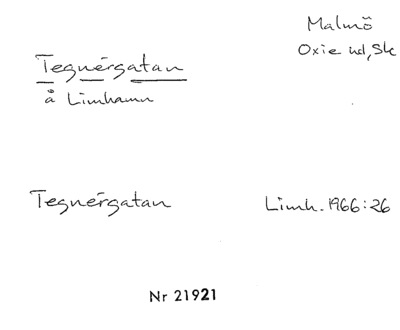 Malmö
Oxie hd, Sk
Tegnérgatan
å Limhamn
Tegnérgatan
Limh. 1966:26
Nr 21921